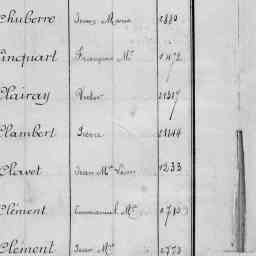 Chuberre Jean Marie 1880
Cinquart François Mie 1472
Clairay Victor 21317
Clambert Pierre 21144
Clavet Jean Mie 1233
Clément Emmanuel Mie 1713
Clément Jean Mie 1773